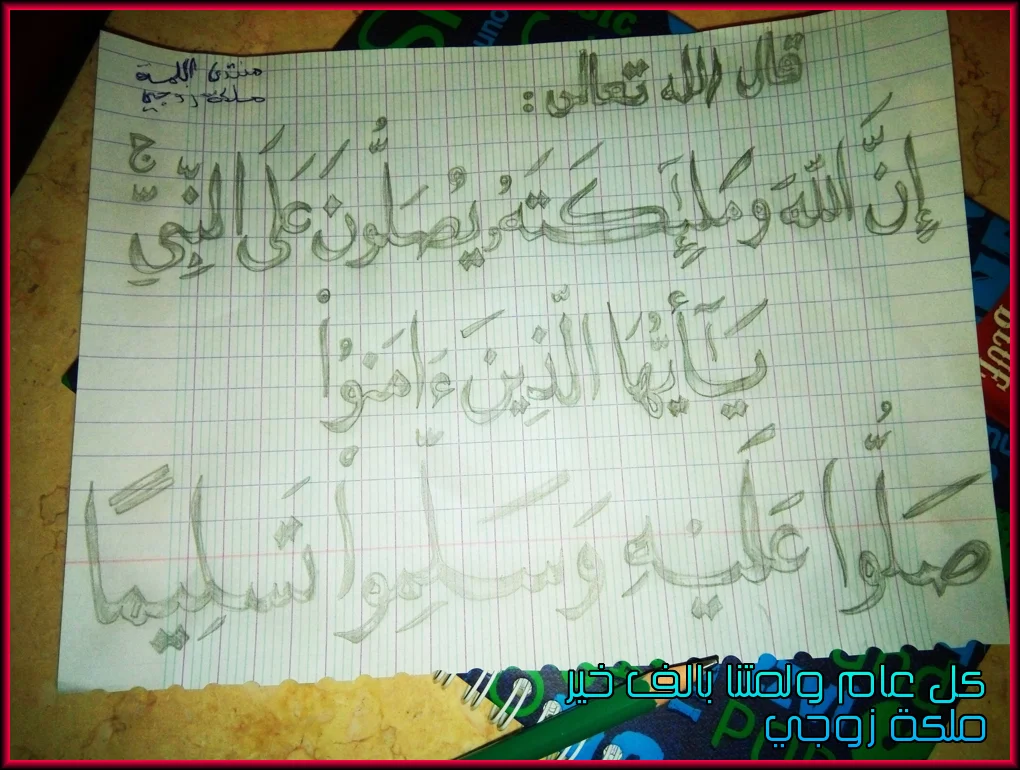 منتدى اللمة
ملكة زوجي
قال الله تعالى :
إِنَّ اللَّهَ وَمَلَٰٓئِكَتَهُۥ يُصَلُّونَ عَلَى النَّبِيِّ ۚ
يَٰٓأَيُّهَا الَّذِينَ ءَامَنُوا۟
صَلُّوا عَلَيْهِ وَسَلِّمُوا۟ تَسْلِيمًا
كل عام ولمتنا بالف خير
ملكة زوجي